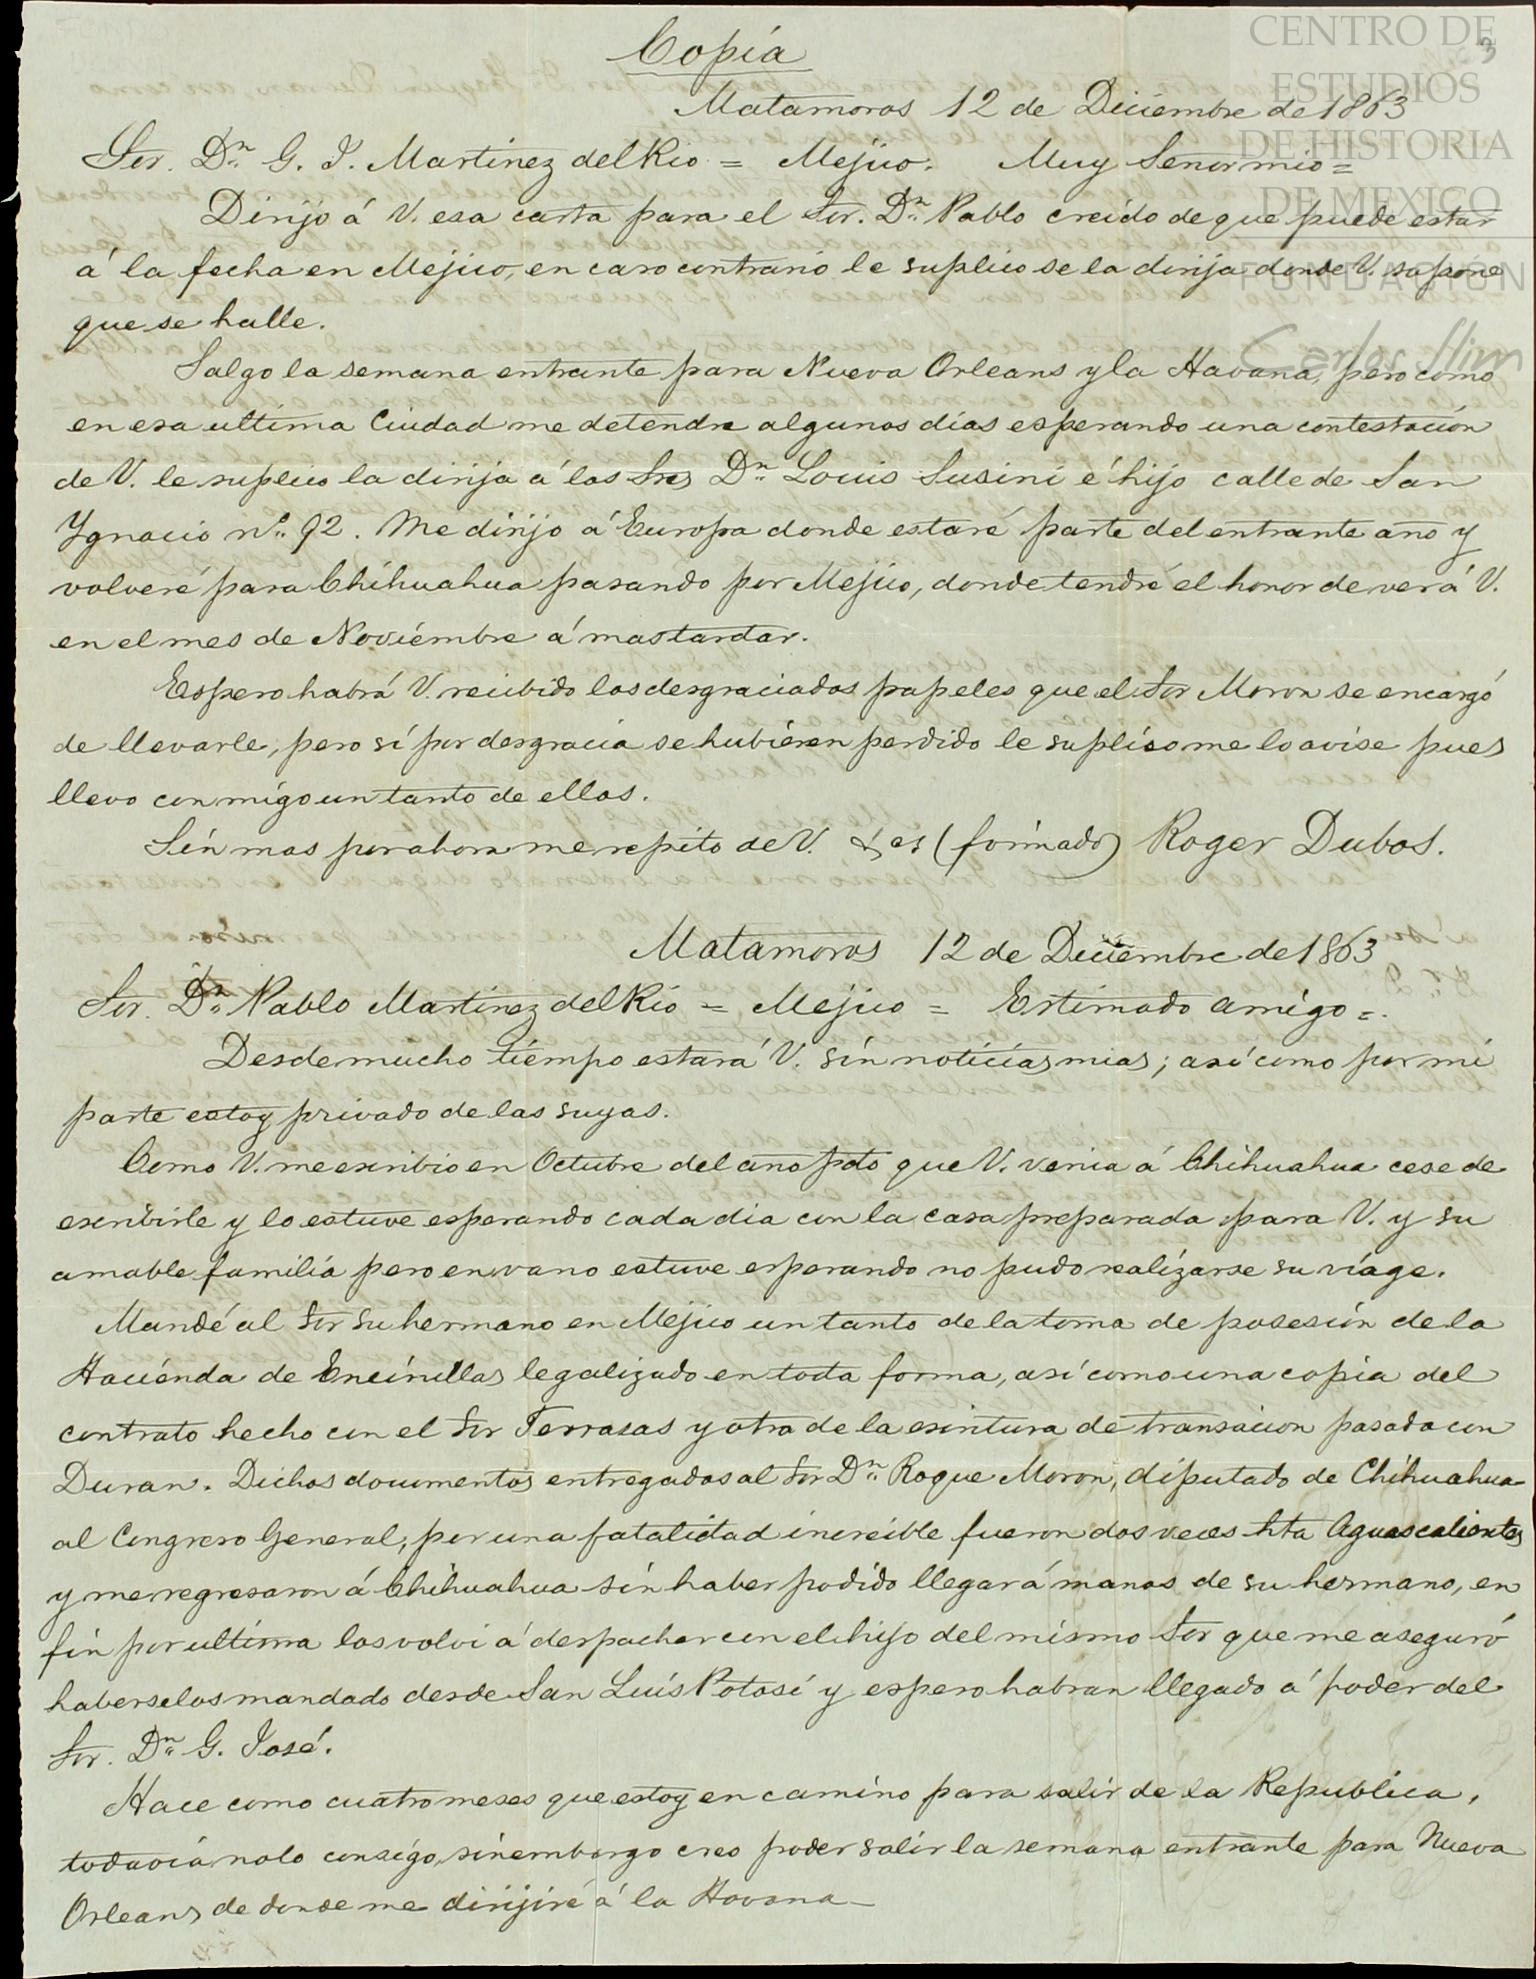 CENTRO DE
ESTUDIOS
DE HISTORIA
DE MEXICO
FUNDACIÓN
Carlos Slim
3
Copia
Matamoros 12 de Diciembre de 1863
Sor. Dn. G. J. Martinez del Rio = Mejico. Muy Señor mio =
Dirijo á V. esa carta para el Sor. Dn. Pablo creido de que puede estar
á la fecha en Mejico, en caso contrario le suplico se la dirija donde V. supone
que se halle.
Salgo la semana entrante para Nueva Orleans y la Havana, pero como
en esa ultima Ciudad me detendre algunos días esperando una contestación
de V. le suplico la dirija á los Sres Dn. Louis Susini é hijo calle de San
Ygnacio no. 92. Me dirijo á Europa donde estaré parte del entrante año y
volveré para Chihuahua pasando por Mejico, donde tendré el honor de ver á V.
en el mes de Noviémbre á mas tardar.
Espero habrá V. recibido los desgraciados papeles que el Sor Moron se encargó
de llevarle, pero sí por desgracia se hubiéren perdido le suplico me lo avise pues
llevo conmigo un tanto de ellos.
Sín mas por ahora me repito de V. & es (fírmado) Roger Dubos.
Matamoros 12 de Diciembre de 1863
Sor. Dn. Pablo Martínez del Rio = Mejico = Estimado amígo =.
Desde mucho tíempo estará V. sín notícías mias; así como por mí
parte estoy privado de las suyas.
Como V. me escribio en Octubre del año pdo que V. venia á Chihuahua cese de
escribirle y lo estuve esperando cada dia con la casa preparada para V. y su
amable família pero en vano estuve esperando no pudo realízarse su víage.
Mandé al Sor su hermano en Mejico un tanto de la toma de posesión de la
Haciénda de Encínillas legalizado en toda forma, así como una copia del
contrato hecho con el Sor Terrasas y otra de la escritura de transacion pasada con
Duran. Dichos documentos entregados al Sor Dn. Roque Moron, díputado de Chihuahua
al Congreso General, por una fatalidad increíble fueron dos veces hta Aguascalientes
y me regresaron á Chihuahua sín haber podído llegar á manos de su hermano, en
fín por ultíma los volvi á despachar con el hijo del mísmo Sor que me aseguró
haberselos mandado desde San Luís Potosí y espero habran llegado á poder del
Sor. Dn. G. José.
Hace como cuatro meses que estoy en camíno para salír de la Republíca,
todavía no lo consígo, sínembargo creo poder salír la semana entrante para Nueva
Orleans de donde me dirijiré á la Havana—